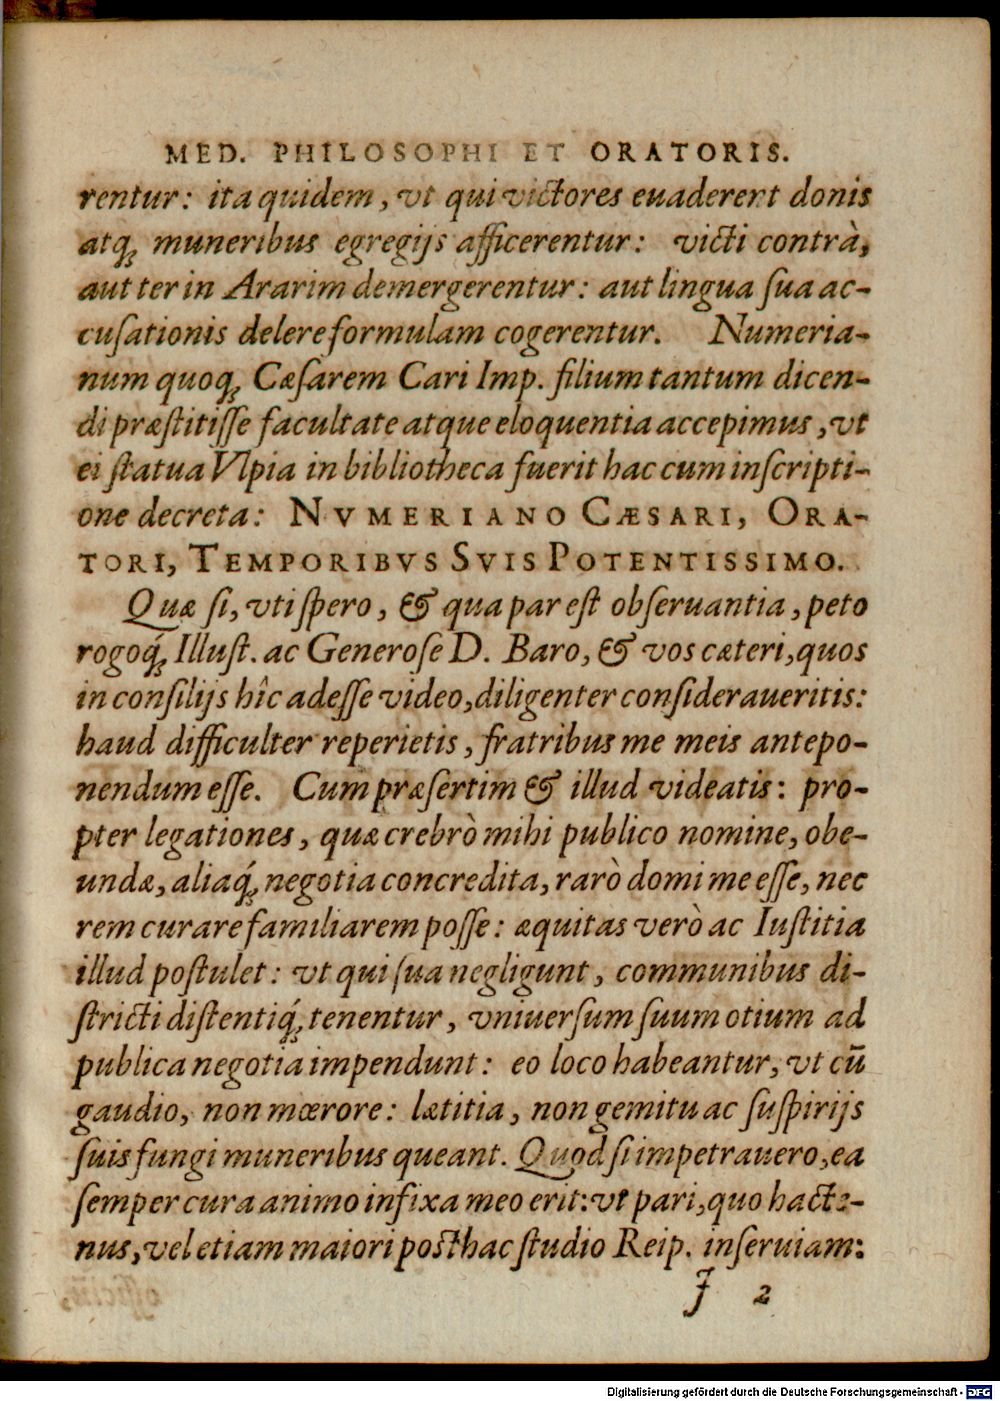 MED. PHILOSOPHI ET ORATORIS.
rentur: ita quidem, vt qui victores euaderent donis
atq́; muneribus egregijs afficerentur: victi contrà,
aut ter in Ararim demergerentur: aut lingua ſua ac-
cuſationis delere formulam cogerentur. Numeria-
num quoq; Cæſarem Cari Imp. filium tantum dicen-
di præſtitiſſe facultate atque eloquentia accepimus, vt
ei ſtatua Vlpia in bibliotheca fuerit hac cum inſcripti-
one decreta: NVMERIANO CÆSARI, ORA-
TORI, TEMPORIBVS SVIS POTENTISSIMO.
Quæ ſi, vti ſpero, & qua par eſt obſeruantia, peto
rogoq́; Illuſt. ac Generoſe D. Baro, & vos cæteri, quos
in conſilijs hîc adeſſe video, diligenter conſideraueritis:
haud difficulter reperietis, fratribus me meis antepo-
nendum eſſe. Cum præſertim & illud videatis: pro-
pter legationes, quæ crebrò mihi publico nomine, obe-
undæ, aliaq́; negotia concredita, rarò domi me eſſe, nec
rem curare familiarem poſſe: æquitas verò ac Iuſtitia
illud poſtulet: vt qui ſua negligunt, communibus di-
ſtricti diſtentiq́; tenentur, vniuerſum ſuum otium ad
publica negotia impendunt: eo loco habeantur, vt cū
gaudio, non mœrore: lætitia, non gemitu ac ſuſpirijs
ſuis fungi muneribus queant. Quod ſi impetrauero, ea
ſemper cura animo infixa meo erit: vt pari, quo hacte-
nus, vel etiam maiori poſthac ſtudio Reip. inſeruiam:
J 2
Digitalisierung gefördert durch die Deutsche Forschungsgemeinschaft - DFG